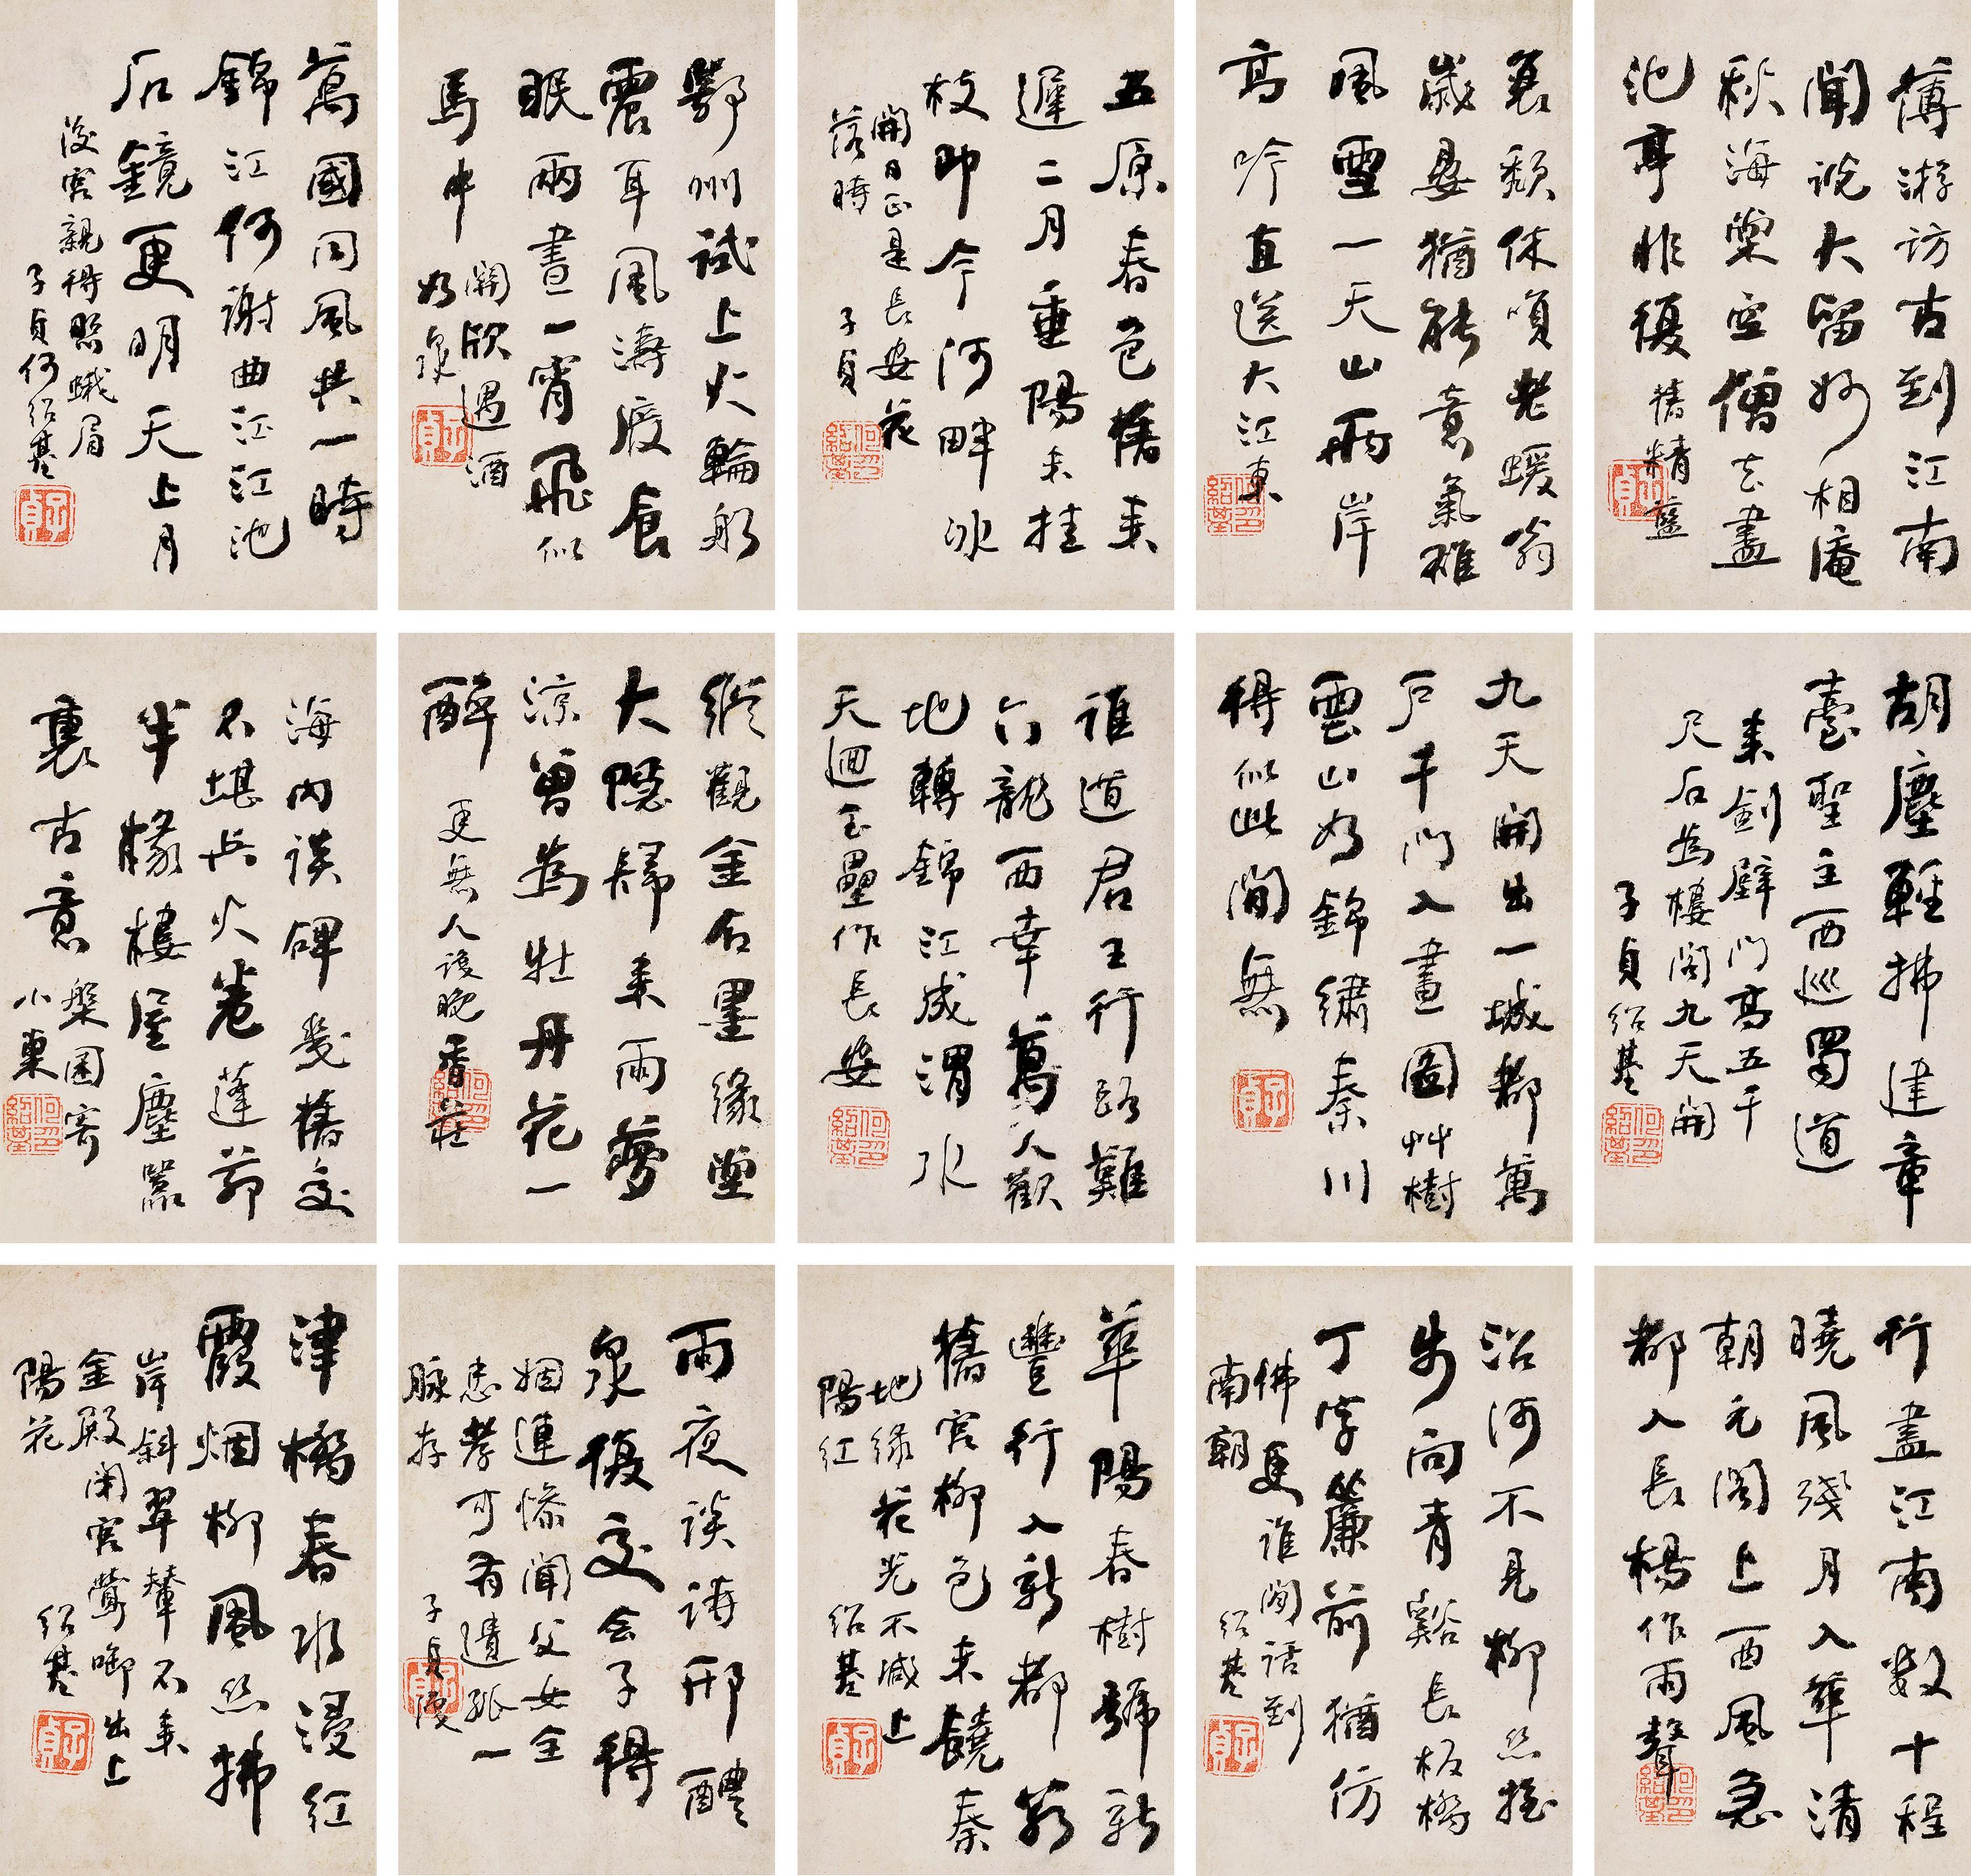 薄游訪古到江南
聞說大留妙相庵
秋海棠空僧去盡
池亭非復舊精藍
子貞
衰頹休嘆老蝯翁
歲晏猶能意氣雄
風雪一天山兩岸
高吟直送大江東
何紹基印
五原春色舊來
遲二月垂陽未挂
枝即今河畔冰
開日正是長安花
落時
子貞
何紹基印
鄂州試上火輪船
震耳風濤廢食
眠兩晝一宵飛似
馬中開欣遇酒
如泉
子貞
萬國同風共一時
錦江何謝曲江池
石鏡更明天上月
後宮親得照蛾眉
子貞何紹基
子貞
胡塵輕拂建章
臺聖主西巡蜀道
來劍壁門高五千
尺石為樓閣九天開
子貞紹基
何紹基印
九天開出一城都萬
戶千門入畫圖艸樹
雲山如錦繡秦川
得似此間無
子貞
誰道君王行路難
六龍西幸萬人歡
地轉錦江成渭水
天迴玉壘作長安
何紹基印
縱觀金石墨緣堂
大隱歸來兩夢
涼曾為牡丹花一
醉
更無人護晚香莊
何紹基印
海內談碑幾舊交
不堪兵火卷蓬茆
半椽樓屋塵囂
裏古意槃園寄
小東
何紹基印
行盡江南數十程
曉風殘月入華清
朝元閣上西風急
都入長楊作雨聲
何紹基印
沿河不見柳絲搖
步向青谿長板橋
丁字簾前猶仿
佛更誰閒話到
南朝
紹基
子貞
華陽春樹號新
豐行入新都若
舊宮柳色未饒秦
地綠花光不減上
陽紅
紹基
子貞
雨夜談詩邢醴
泉復交會子得
姻連慘聞父女全
忠孝可有遺孤一
脉存
子貞
子貞
津橋春水浸紅
霞烟柳風絲拂
岸斜翠輦不來
金殿閉宮鶯啣出上
陽花
紹基
子貞